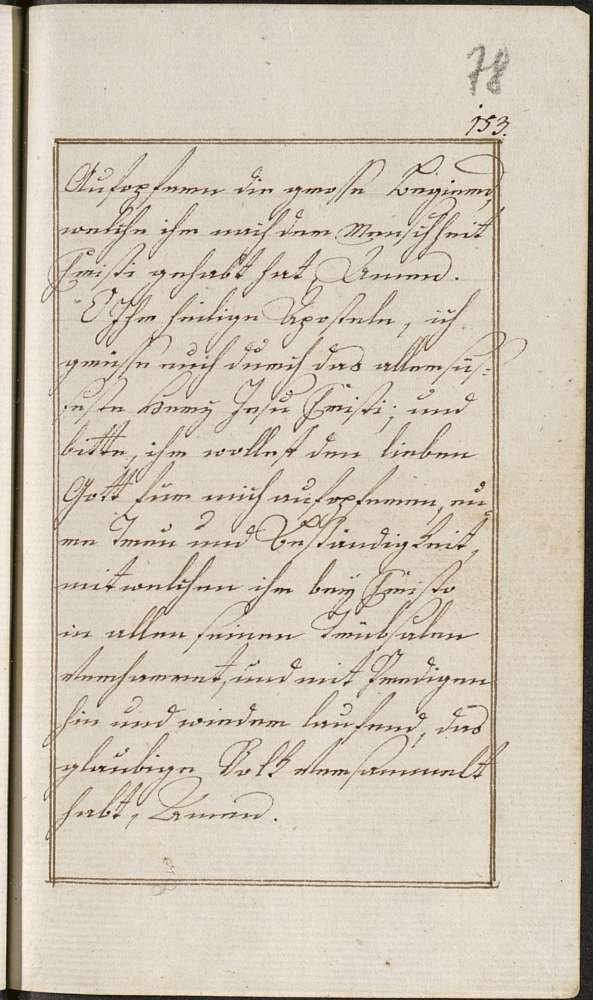 78
153.
Aufopferen die grosse Begierd,
welche ihr nach der Menschheit
Christi gehabt hat, Amen.
O Ihr heilige Aposteln, ich
grüsse euch durch das allersüs-
seste Herz Jesu Christi; und
bitte, ihr wollest den lieben
Gott für mich aufopferen, eu-
re Treu und Beständigkeit,
mit welchen ihr bey Christo
in allen seinen Trübsalen
verharret, und mit Predigen
hin und wieder laufend, das
glaubige Volk versammelt
habt, Amen.